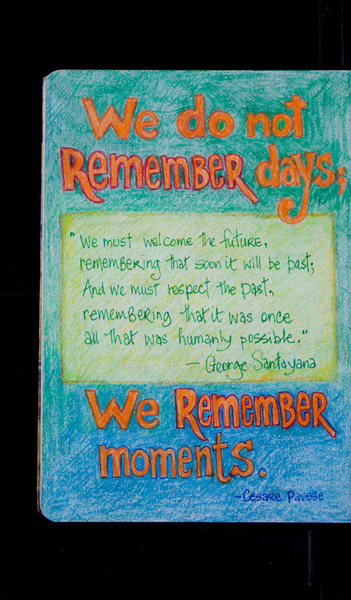 We do not
Remember days;
"We must welcome the future,
remembering that soon it will be past;
And we must respect the past,
remembering that it was once
all that was humanly possible."
– George Santayana
We Remember
moments.
– Cesare Pavese